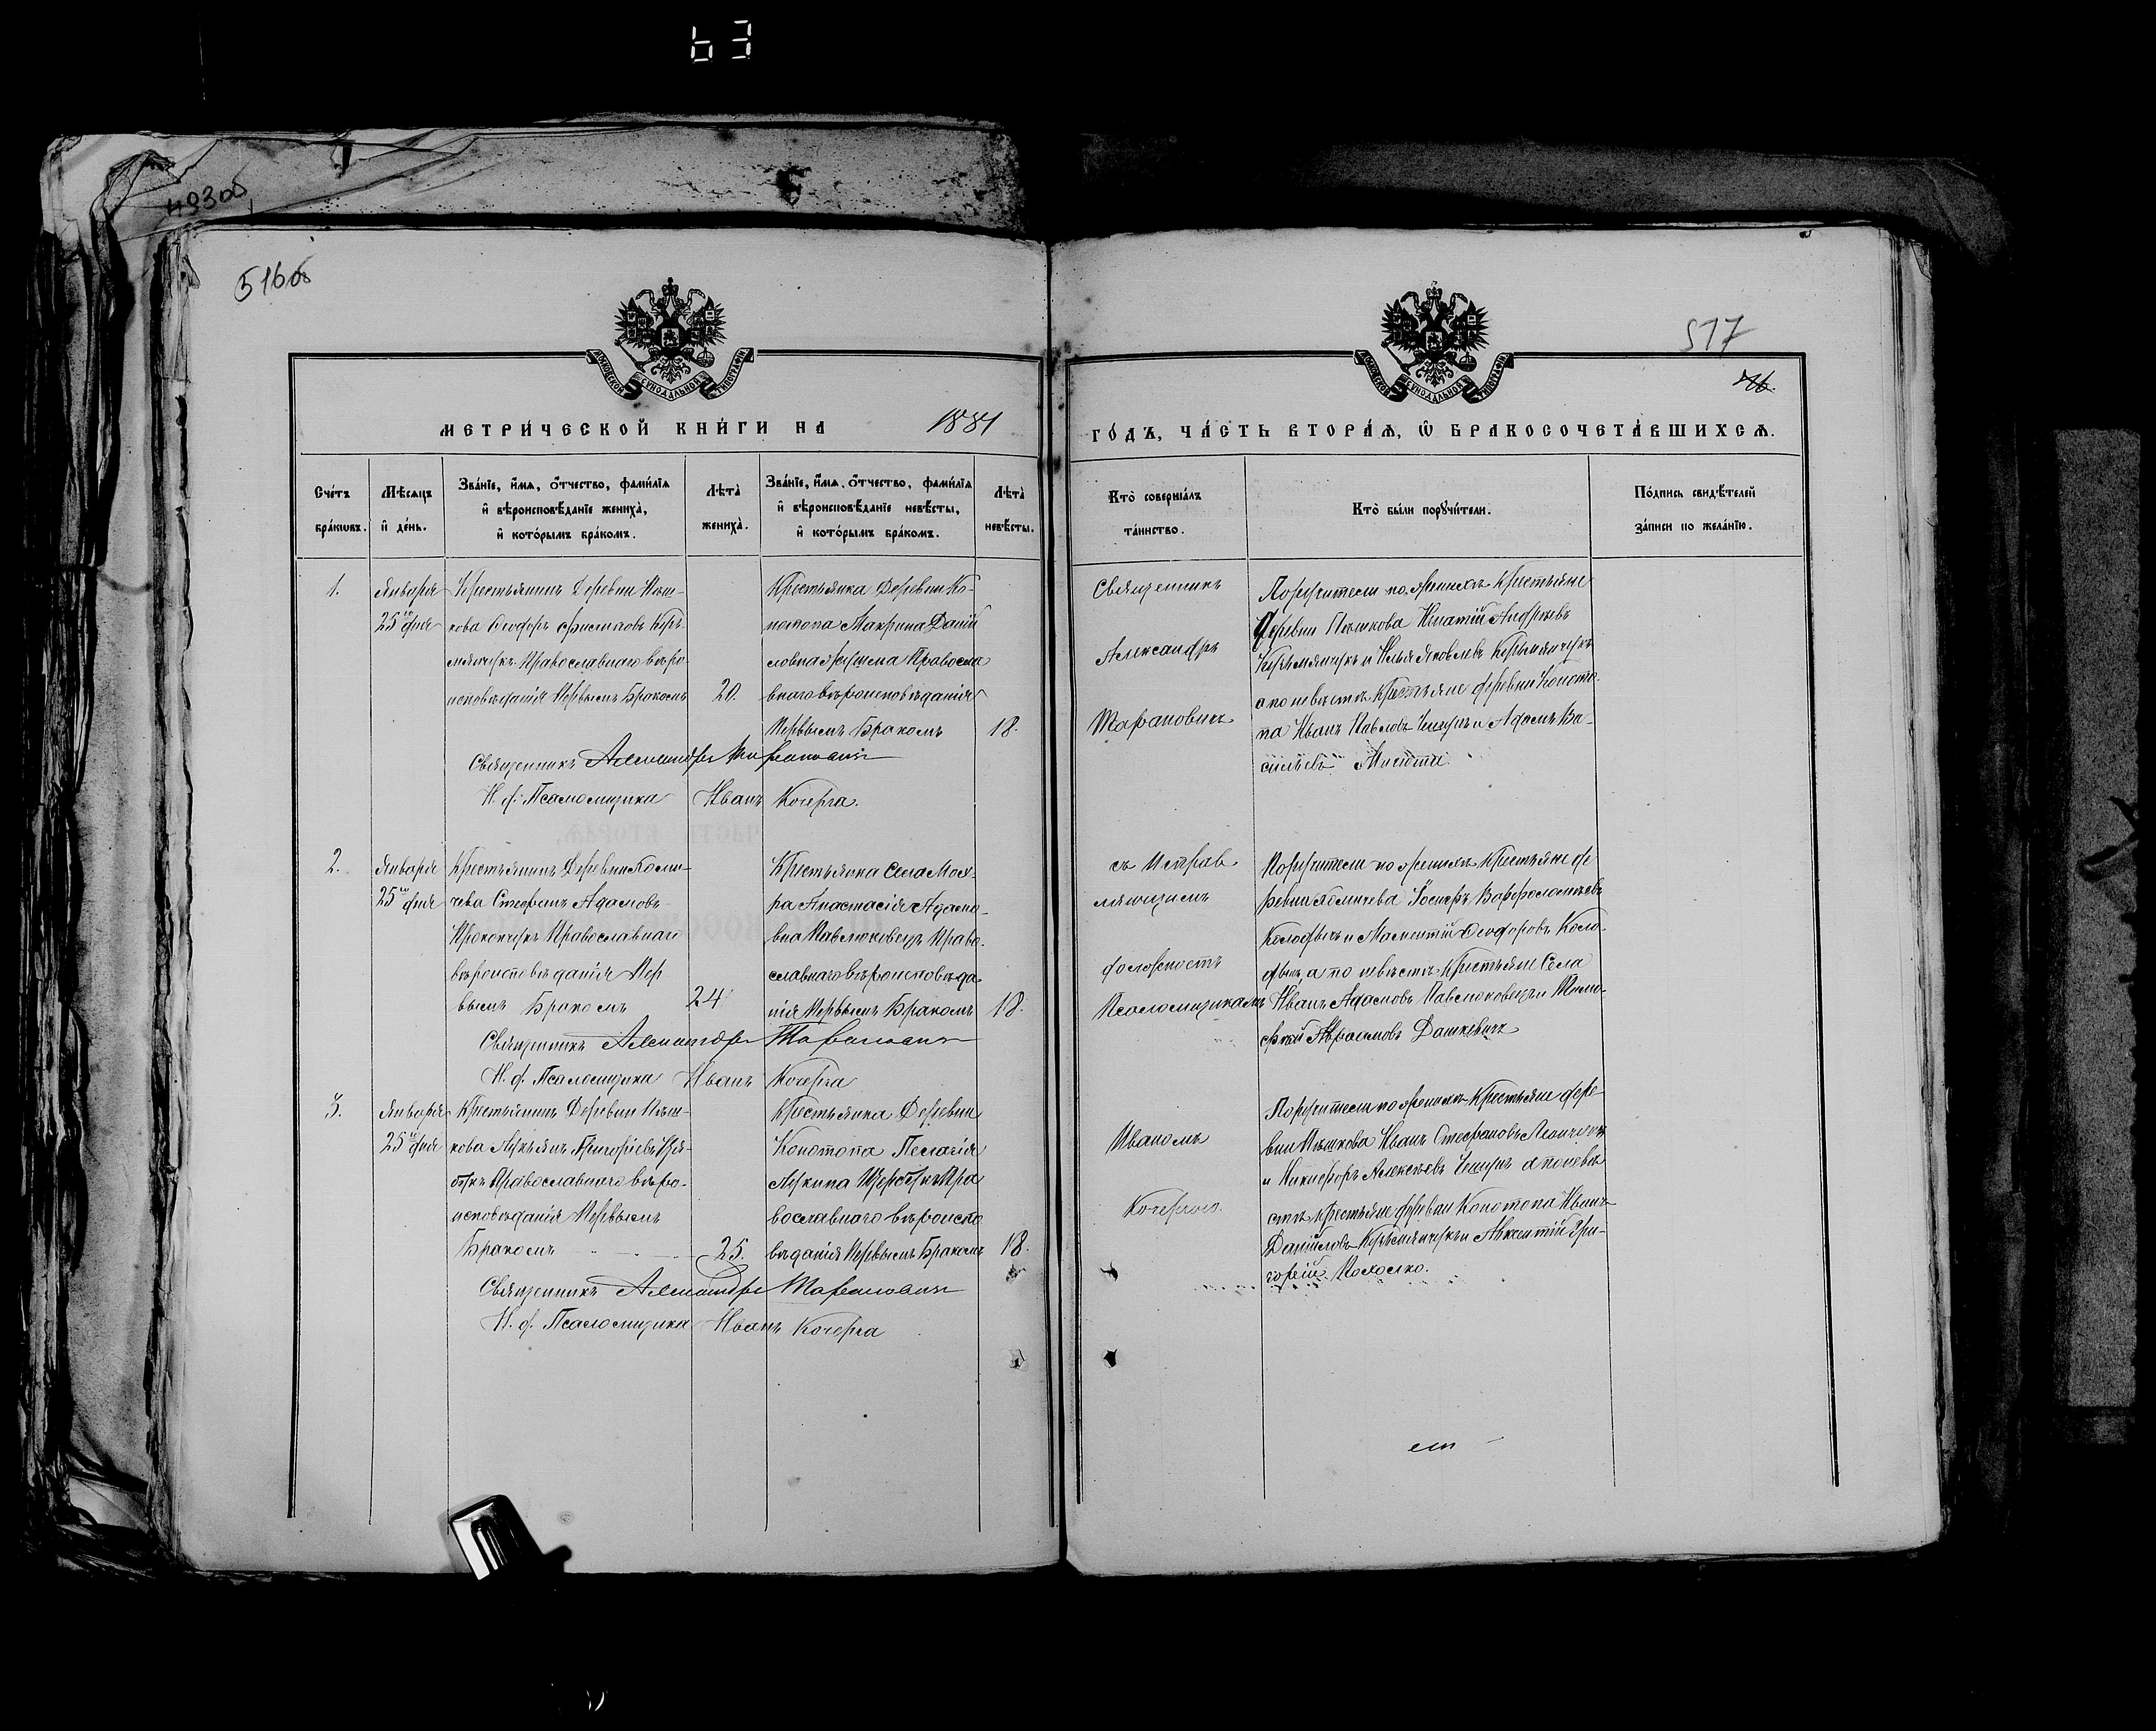 63
493об
516об
517
МОСКОВСКОЙ СУНОДАЛЬНОЙ ТИПОГРАФІИ
МОСКОВСКОЙ СУНОДАЛЬНОЙ ТИПОГРАФІИ
МЕТРИ́ЧЕСКОЙ КНИ́ГИ НА 1881
ГО́ДЪ, ЧА́СТЬ ВТОРА́Ѧ, Ѿ БРАКОСОЧЕТА́ВШИХСѦ.
Сче́тъ бра́кѡвъ.
Мѣ́сѧцъ и҆ де́нь.
Зва́нїе, и҆́мѧ, ѻ҆́тчество, фами́лїѧ и҆ вѣроисповѣ́данїе жениха̀, и҆ кото́рымъ бра́комъ.
Лѣта̀ жениха̀.
Зва́нїе, и҆́мѧ, ѻ҆́тчество, фами́лїѧ и҆ вѣроисповѣ́данїе невѣ́сты, и҆ кото́рымъ бра́комъ.
Лѣта̀ невѣ́сты.
Кто̀ соверша́лъ та́инство.
Кто̀ бы́ли порꙋчи́тели.
По́дпись свидѣ́телей за́писи по жела́нїю.
1.
Января
25го дня
Крестьянинъ Деревни Пѣш-
кова Ѳеодоръ Филиповъ
Православнаго вѣро
исповѣданія Первымъ Бракомъ
20.
Крестьянка Деревни Ко-
нотопа Макрина Даній
ловна Православ
внаго вѣроисповѣданія
Первымъ Бракомъ
18.
Священникъ
Александръ
Тарановичъ
Поручители по женихѣ Крестьяне
Деревни Пѣшкова Игнатій Андреевъ
и Илья Яковлевъ
а по невѣстѣ Крестьяне деревни Коното-
па Иванъ Павловъ и Адамъ Ва-
сильевъ
Священникъ Александръ Тарановичъ
И. д. Псаломщика Иванъ Кочерга.
2.
Января
25го дня
Крестьянинъ Деревни Коми-
чева Стефанъ Адамовъ
Прокопчукъ Православнаго
вѣроисповѣданія Пер
вымъ Бракомъ
24
Крестьянка Села Мох-
ра Анастасія Адамо-
вна Павлюковецъ Право-
славнаго вѣроисповѣда
нія Первымъ Бракомъ
18.
съ Исправ
ляющимъ
должность
Псаломщикомъ
Поручители по женихѣ Крестьяне де
ревни Комичева Іосифъ Варфоломѣевъ
Колодычъ и Маментій Ѳеодоровъ Коло-
дычъ а по невѣстѣ Крестьяне Села
Иванъ Адамовъ Павлюковецъ и Тимо-
фей Авраамовъ Дашкевичъ
Священникъ Александръ Тарановичъ
И. д. Псаломщика Иванъ Кочерга
3.
Января
25го дня
Крестьянинъ Деревни Пѣш-
кова Лукьянъ Григорьевъ
Православнаго вѣро-
исповѣданія Первымъ
Бракомъ
25.
Крестьянка Деревни
Конотопа Пелагія
Лукина Пра
вославнаго вѣроиспо
вѣданія Первымъ Бракомъ
18.
Иваномъ
Кочергою.
Поручители по женихѣ Крестьяне дере-
вни Пѣшкова Иванъ Стефановъ
и Никифоръ Алексѣевъ а по невѣ
стѣ крестьяне деревни Конотопа Иванъ
Даниловъ и Авксентій Гри-
горьевъ
Священникъ Александръ Тарановичъ
И. д. Псаломщика Иванъ Кочерга